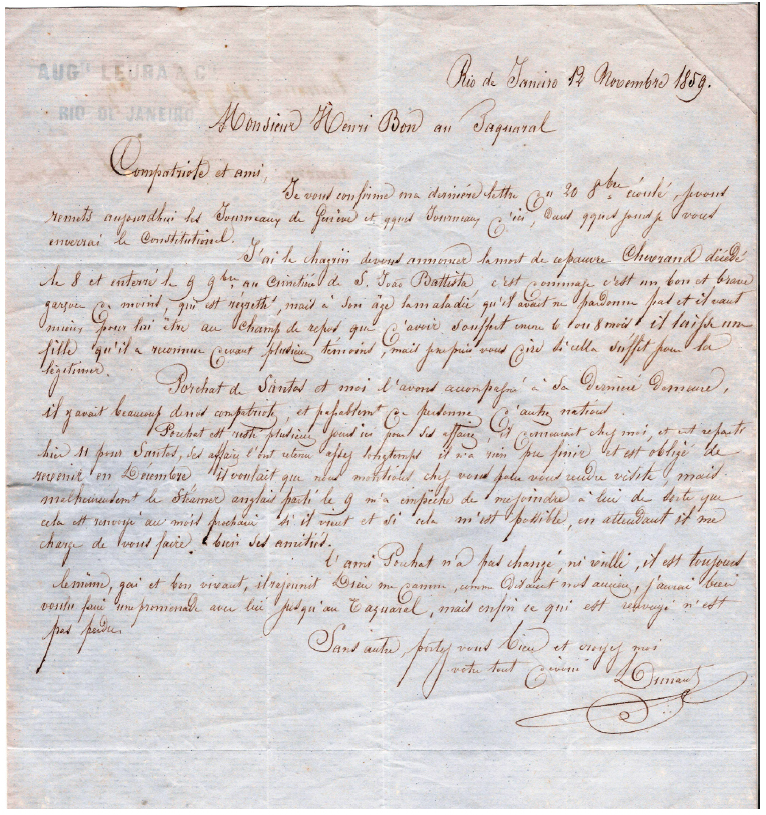 AUGte LEUBA & C
RIO DE JANEIRO
Rio de Janeiro 12 Novembre 1859.
Monsieur Henri Bon au Taquaral
Compatriote et ami,
Je vous confirme ma dernière lettre du 20 8bre écoulé, je vous
remets aujourdhui les Journeaux de Genève et qques Journeaux d'ici, dans qques jours je vous
enverrai le Constitutionel.
J'ai le chagrin de vous annoncer la mort de ce pauvre Chevrand décédé
le 8 et enterré le 9 9bre au Cimetière de S. João Battista, c'est dommage c'est un bon et brave
garçon de moins, qui est regretté, mais à son âge la maladie qu'il avait ne pardonne pas et il vaut
mieux pour lui être au champ de repos que d'avoir souffert encore 6 ou 8 mois il laisse une
fille qu'il a reconnue devant plusieurs témoins, mais je ne puis vous dire si cella suffit pour la
légitimer.
Porchat de Santos et moi l'avons accompagné à sa dernière demeure,
il y avait beaucoup de nos compatriotes, et passablemt de personnes d'autres nations.
Pouchat est resté plusieurs jours ici pour ses affaires, il demeurait chez moi, et est reparti
hier 11 pour Santos, ses affaires l'ont retenu assez longtemps il n'a rien pu finir et est obligé de
revenir en Décembre il voulait que nous montions chez vous pour vous rendre visite, mais
malheureusement le Steamer anglais parti le 9 m'a empêché de me joindre à lui de sorte que
cela est renvoyé au mois prochain si il vient et si cela m'est possible, en attendant il me
charge de vous faire bien ses amitiés.
L'ami Pouchat n'a pas changé, ni vieilli, il est toujours
le même, gai et bon vivant, il rejeunit Dieu me damne, comme disaient nos anciens, j'aurai bien
voulu faire une promenade avec lui jusqu'au Taquarel, mais enfin ce qui est renvoyé n'est
pas perdu.
Sans autre, portez vous bien et croyez moi
votre tout dévoué